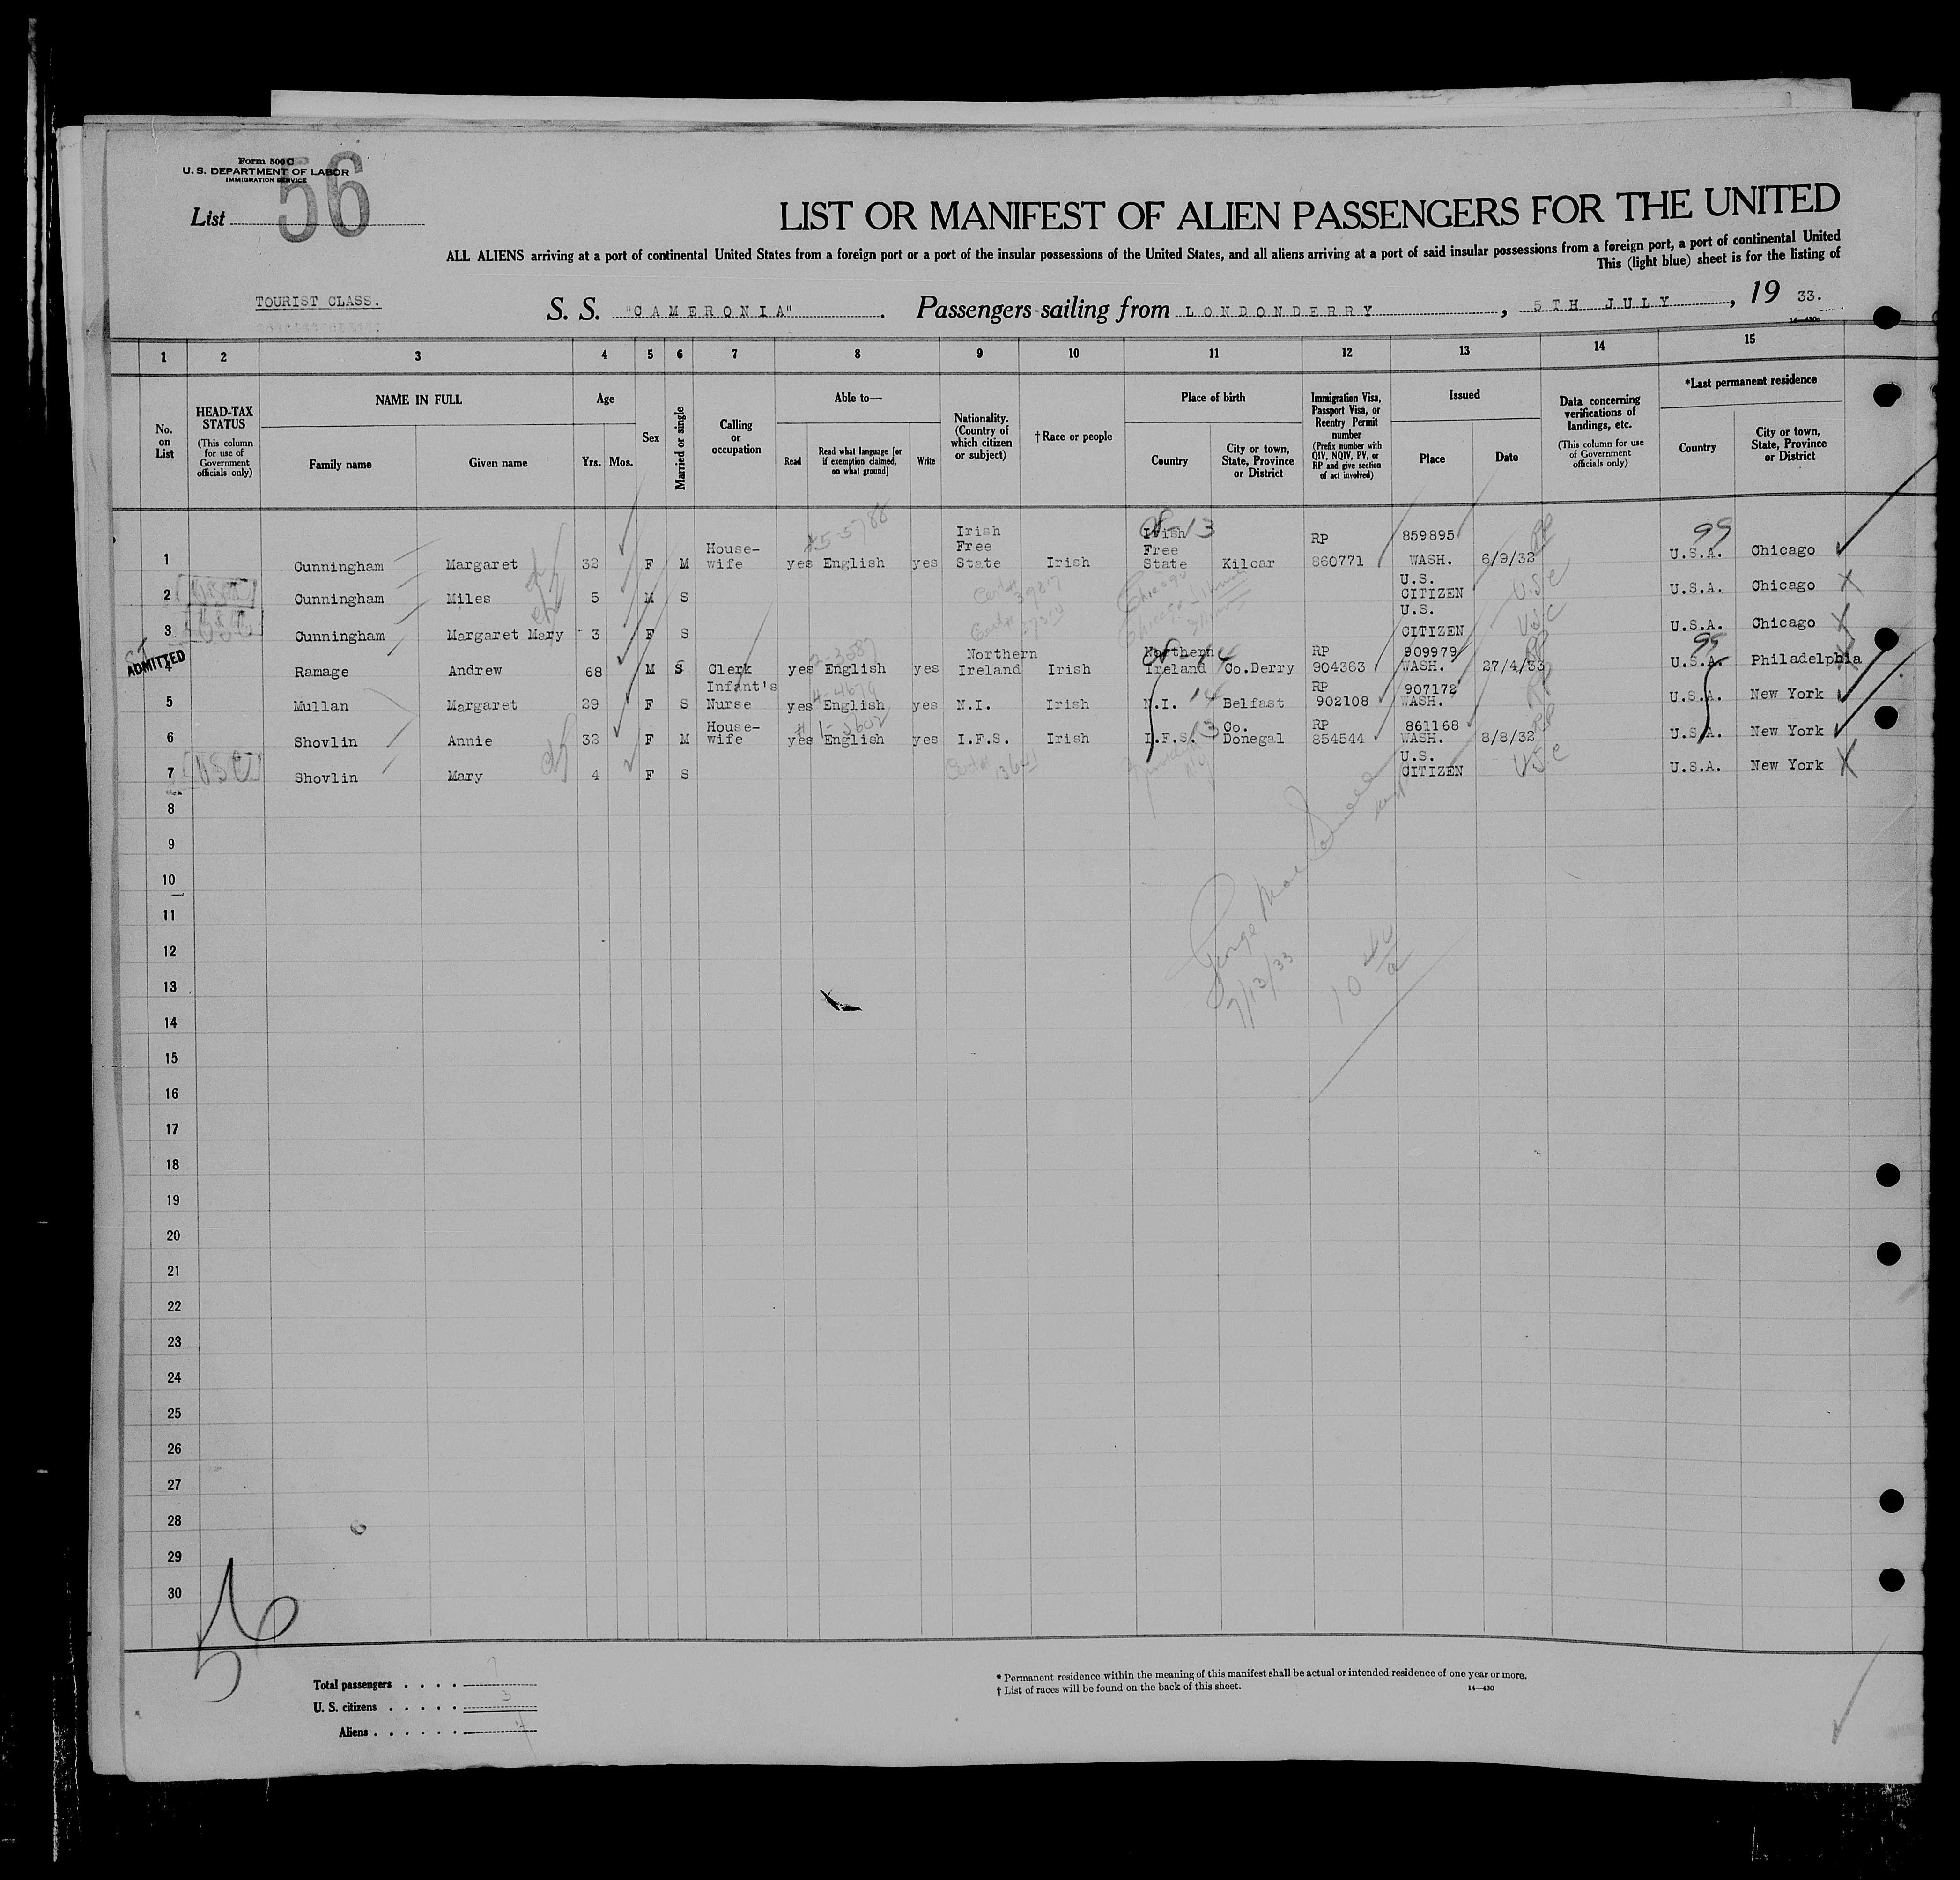 Form 500 C
U. S. DEPARTMENT OF LABOR
IMMIGRATION SERVICE
List 56
LIST OR MANIFEST OF ALIEN PASSENGERS FOR THE UNITED
ALL ALIENS arriving at a port of continental United States from a foreign port or a port of the insular possessions of the United States, and all aliens arriving at a port of said insular possessions from a foreign port, a port of continental United
This (light blue) sheet is for the listing of
TOURIST CLASS.
S. S. "CAMERONIA". Passengers sailing from LONDONDERRY, 5TH JULY, 19 33.
14—430a
1 2 3 4 5 6 7 8 9 10 11 12 13 14 15
No. on List
HEAD-TAX STATUS (This column for use of Government officials only)
NAME IN FULL
Family name Given name
Age
Yrs. Mos.
Sex
Married or single
Calling or occupation
Able to—
Read
Read what language [or if exemption claimed, on what ground]
Write
Nationality. (Country of which citizen or subject)
† Race or people
Place of birth
Country
City or town, State, Province or District
Immigration Visa, Passport Visa, or Reentry Permit number (Prefix number with QIV, NQIV, PV, or RP and give section of act involved)
Issued
Place Date
Data concerning verifications of landings, etc. (This column for use of Government officials only)
*Last permanent residence
Country
City or town, State, Province or District
1 Cunningham Margaret 32 F M House-wife yes English yes Irish Free State Irish Irish Free State Kilcar RP 860771 859895 WASH. 6/9/32 U.S.A. Chicago
5-5788
13
99
RP
2 USC Cunningham Miles 5 M S U.S. CITIZEN USC U.S.A. Chicago
3 USC Cunningham Margaret Mary 3 F S U.S. CITIZEN USC U.S.A. Chicago
ADMITTED
4 Ramage Andrew 68 M S Clerk yes English yes Northern Ireland Irish Northern Ireland Co.Derry RP 904363 909979 WASH. 27/4/33 U.S.A. Philadelphia
2-3587
14
99
RP
5 Mullan Margaret 29 F S Infant's Nurse yes English yes N.I. Irish N.I. Belfast RP 902108 907172 WASH. U.S.A. New York
4-4679
14
6 Shovlin Annie 32 F M House-wife yes English yes I.F.S. Irish I.F.S. Co. Donegal RP 854544 861168 WASH. 8/8/32 U.S.A. New York
13
7 USC Shovlin Mary 4 F S U.S. CITIZEN USC U.S.A. New York
8
9
10
11
12
13
14
15
16
17
18
19
20
21
22
23
24
25
26
27
28
29
30
George
7/13/33
56
Total passengers 7
U. S. citizens 3
Aliens 4
* Permanent residence within the meaning of this manifest shall be actual or intended residence of one year or more.
† List of races will be found on the back of this sheet.
14—430